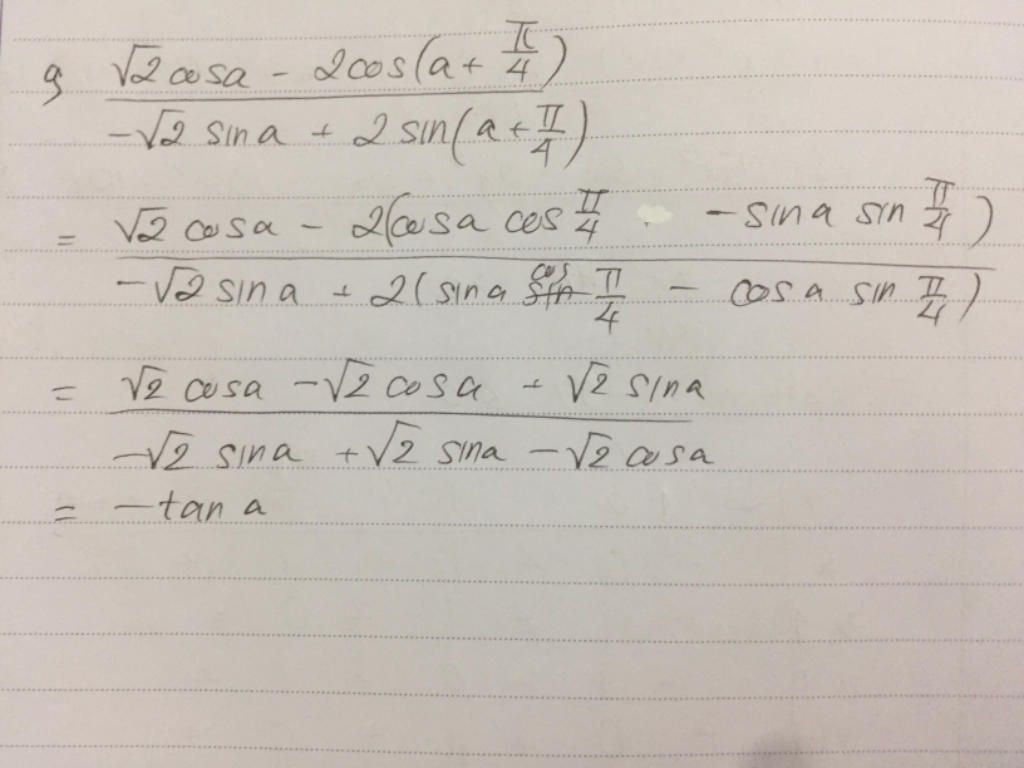 g √2 cosa - 2cos(a + π/4)
-√2 sina + 2 sin(a + π/4)
= √2 cosa - 2(cosa cos π/4 - sina sin π/4)
-√2 sina + 2(sina cos π/4 - cosa sin π/4)
= √2 cosa - √2 cosa + √2 sina
-√2 sina + √2 sina - √2 cosa
= -tan a